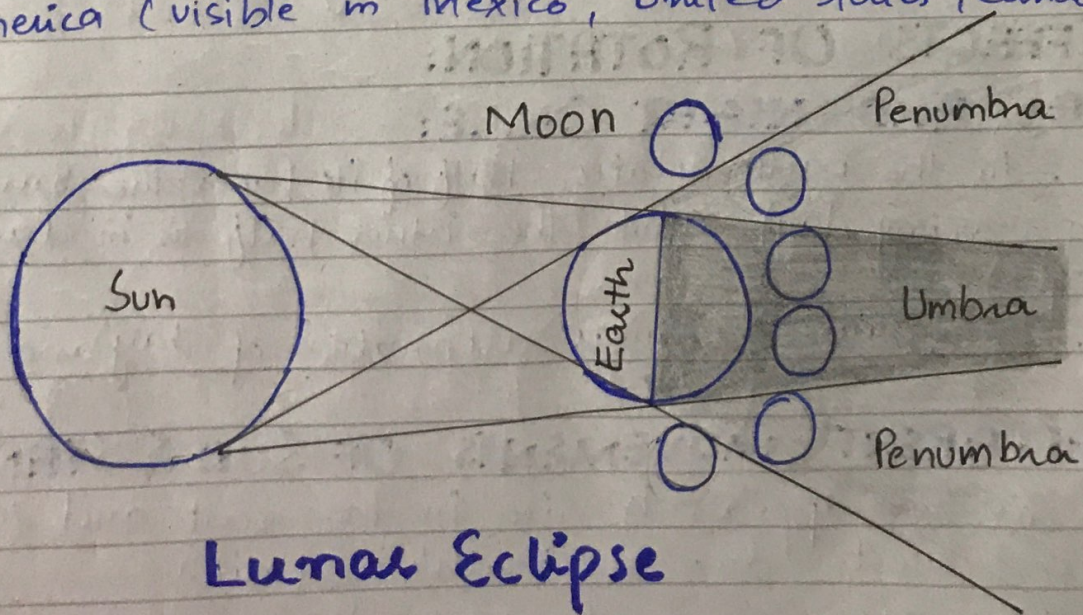 (visible in Mexico, United States,
Moon
Penumbra
Sun
Earth
Umbra
Penumbra
Lunar Eclipse